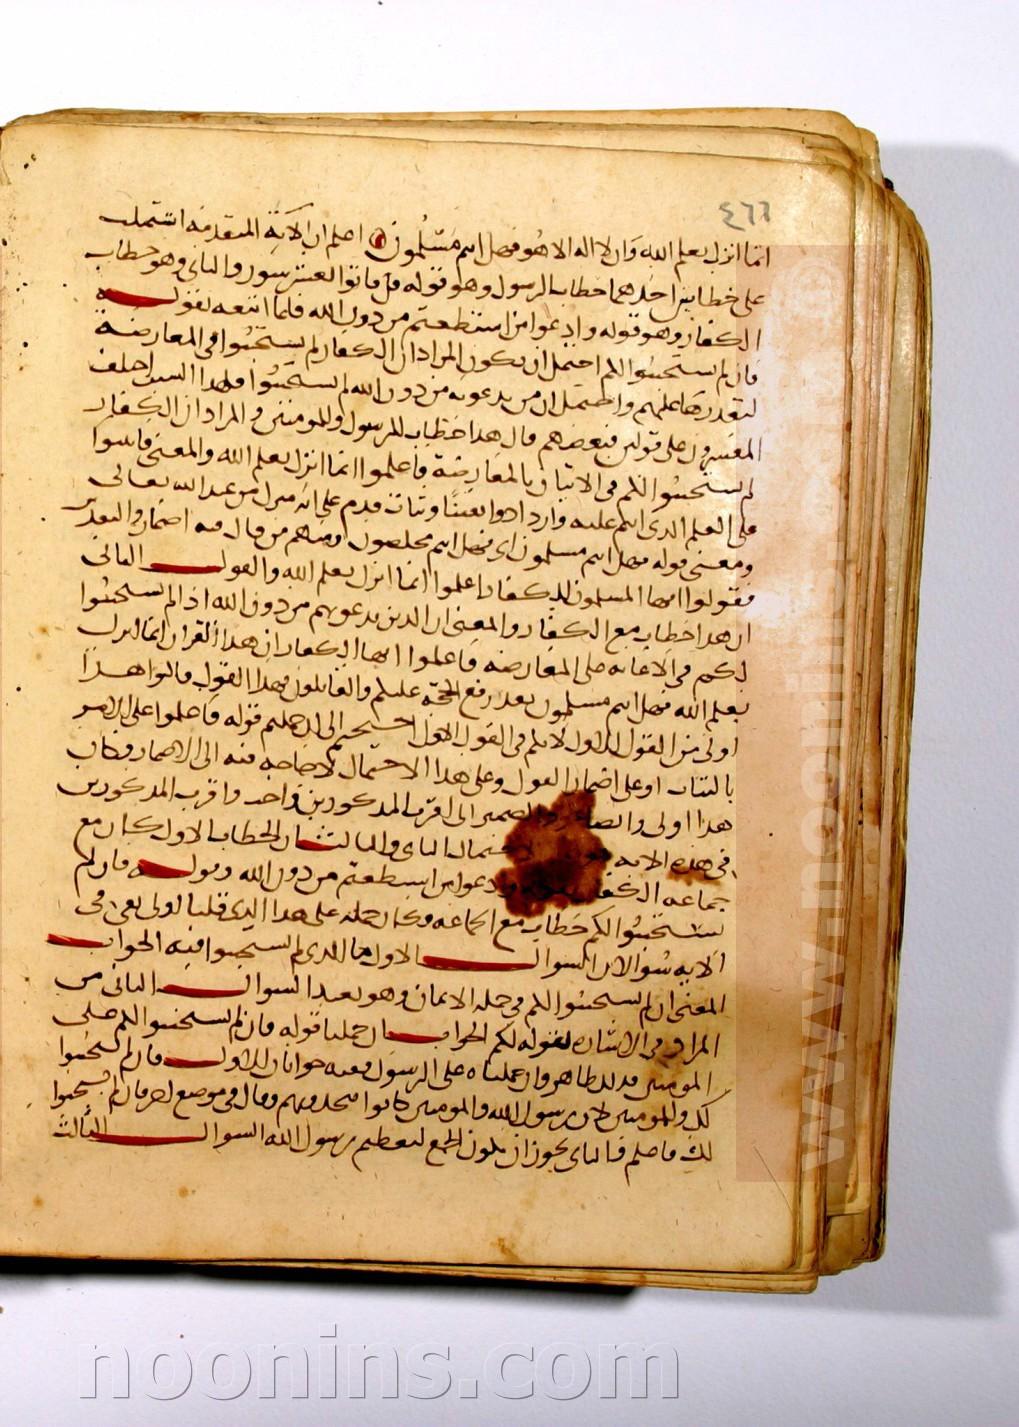 ٤٦٦
انما انزل بعلم الله وان لا اله الا هو فهل انتم مسلمون اعلم ان الاية المتقدمة اشتملت
على خطابين احدهما خطاب الرسول وهو قوله قل فاتوا بعشر سور والثاني وهو خطاب
الكفار وهو قوله وادعوا من استطعتم من دون الله فلما اتبعه بقوله
فان لم يستجيبوا لكم احتمل ان يكون المراد ان الكفار لم يستجيبوا في المعارضة
لتعذرها عليهم واحتمل ان من يدعونه من دون الله لم يستجيبوا فلهذا السبب اختلف
المفسرون على قولين فبعضهم قال هذا خطاب للرسول والمومنين والمراد ان الكفار
لم يستجيبوا لكم في الاتيان بالمعارضة فاعلموا انما انزل بعلم الله والمعنى فاثبتوا
على العلم الذي انتم عليه وازدادوا يقينا وثبات قدم على انه منزل من عند الله تعالى
ومعنى قوله فهل انتم مسلمون اي فهل انتم مخلصون ومنهم من قال فيه اضمار والتقدير
فقولوا ايها المسلمون للكفار اعلموا انما انزل بعلم الله والقول الثاني
ان هذا خطاب مع الكفار والمعنى ان الذين يدعونهم من دون الله اذا لم يستجيبوا
لكم في الاعانه على المعارضه فاعلموا ايها الكفار ان هذا القران انما انزل
بعلم الله فهل انتم مسلمون بعد رفع الحجة عليكم والقائلون بهذا القول قالوا هذا
اولى من القول الاول لانكم في القول الاول احتجتم الى ان حملتم قوله فاعلموا على الامر
بالثبات او على اضمار القول وعلى هذا الاحتمال لا حاجه فيه الى الاضمار فكان
هذا اولى وايضا فعود الضمير الى اقرب المذكورين واجب واقرب المذكورين
في هذه الايه هو الاحتمال الثاني والثالث ان الخطاب الاول كان مع
جماعه الكفار بقوله وادعوا من استطعتم من دون الله وقوله فان لم
يستجيبوا لكم خطاب مع الجماعه وكان حمله على هذا الذي قلنا اولى بقي في
الايه سوالات السوال الاول ما الذي لم يستجيبوا فيه الجواب
المعنى ان لم يستجيبوا لكم في جملة الايمان وهو بعيد السوال الثاني من
المراد من الاشاره بقوله لكم الجواب ان حملنا قوله فان لم يستجيبوا لكم على
المومنين فذلك ظاهر وان حملناه على الرسول ففيه جوابان الاول فان لم يستجيبوا
لك وللمومنين لان رسول الله والمومنين كانوا يتحدونهم وقال في موضع اخر فان لم يستجيبوا
لك فاعلم فالثاني يجوز ان يكون الجمع لتعظيم رسول الله السوال الثالث
www.noonins.com
noonins.com